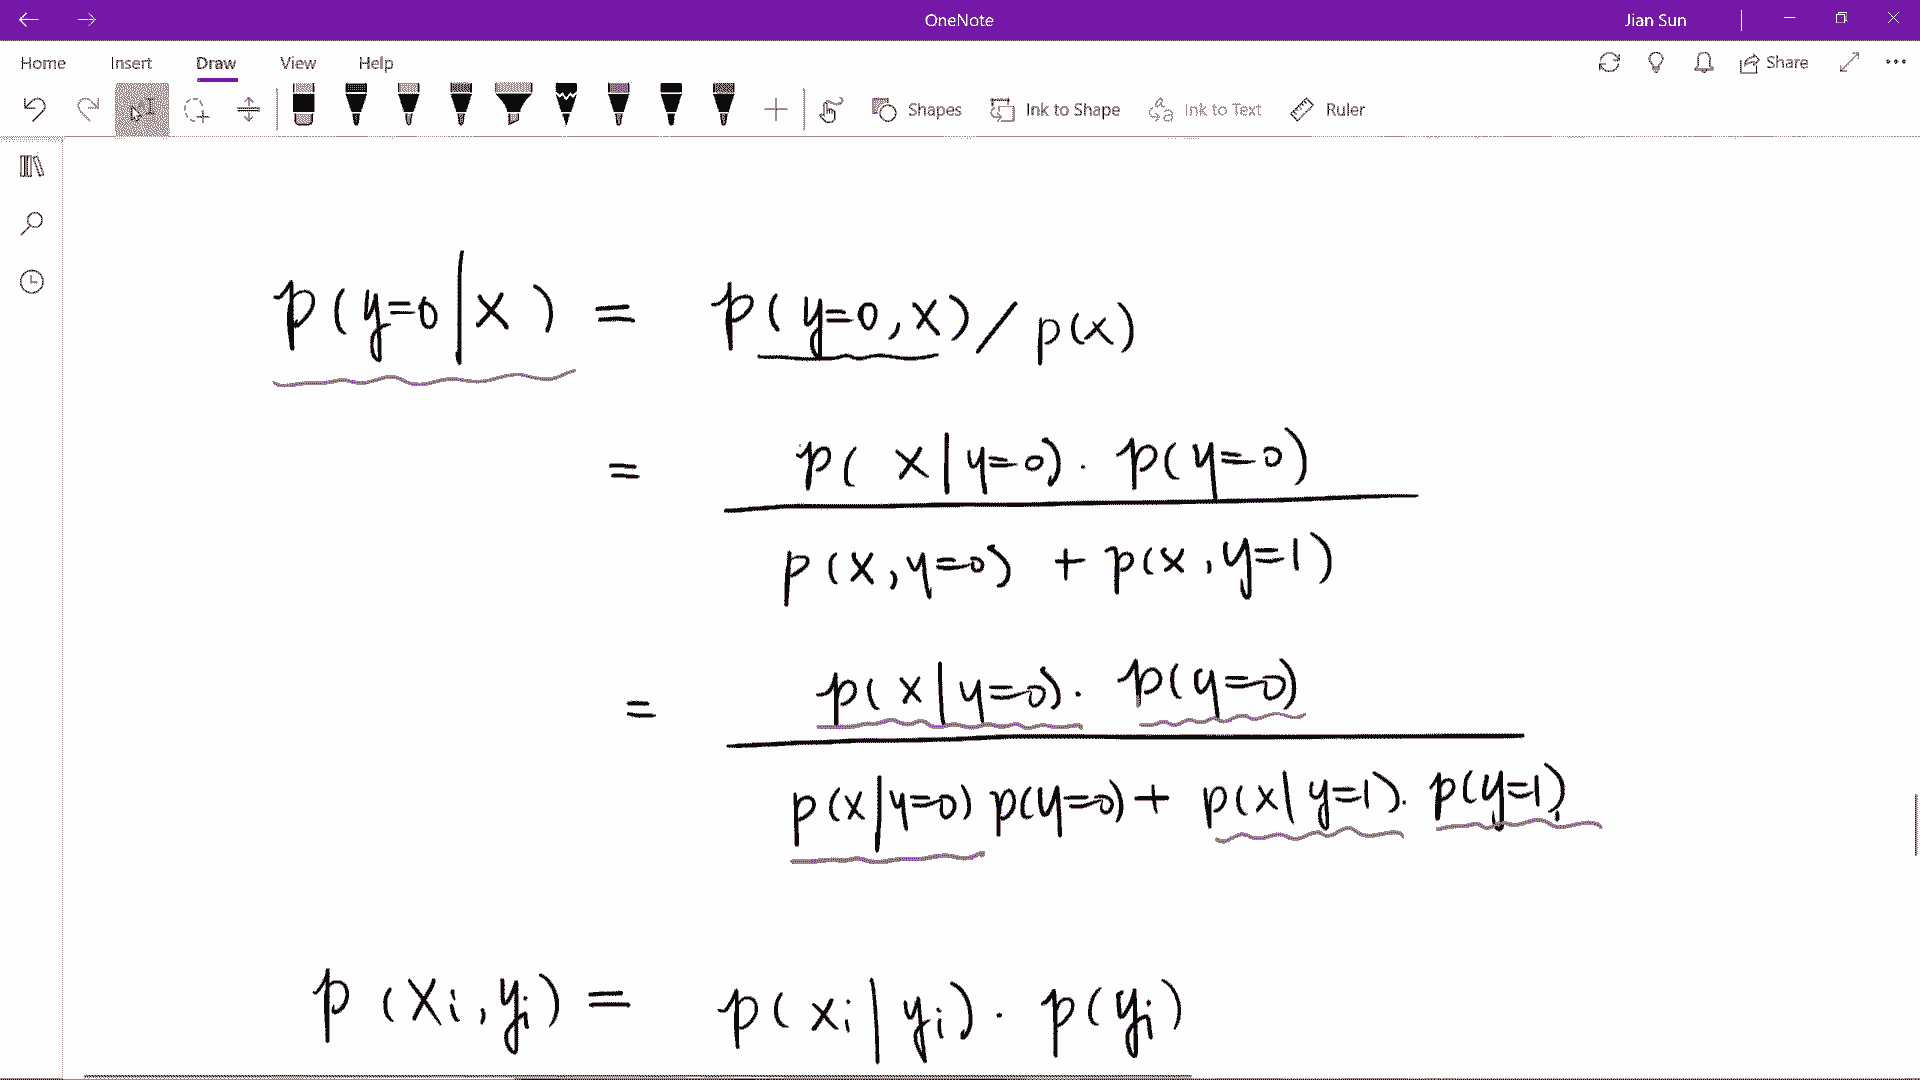 OneNote
Jian Sun
Home Insert Draw View Help
Share
Shapes Ink to Shape Ink to Text Ruler
p(y=0|x) = p(y=0,x)/p(x)
= p(x|y=0)·p(y=0)
p(x,y=0) + p(x,y=1)
= p(x|y=0)·p(y=0)
p(x|y=0)p(y=0)+p(x|y=1)·p(y=1)
p(xi,yi) = p(xi|yi)·p(yi)